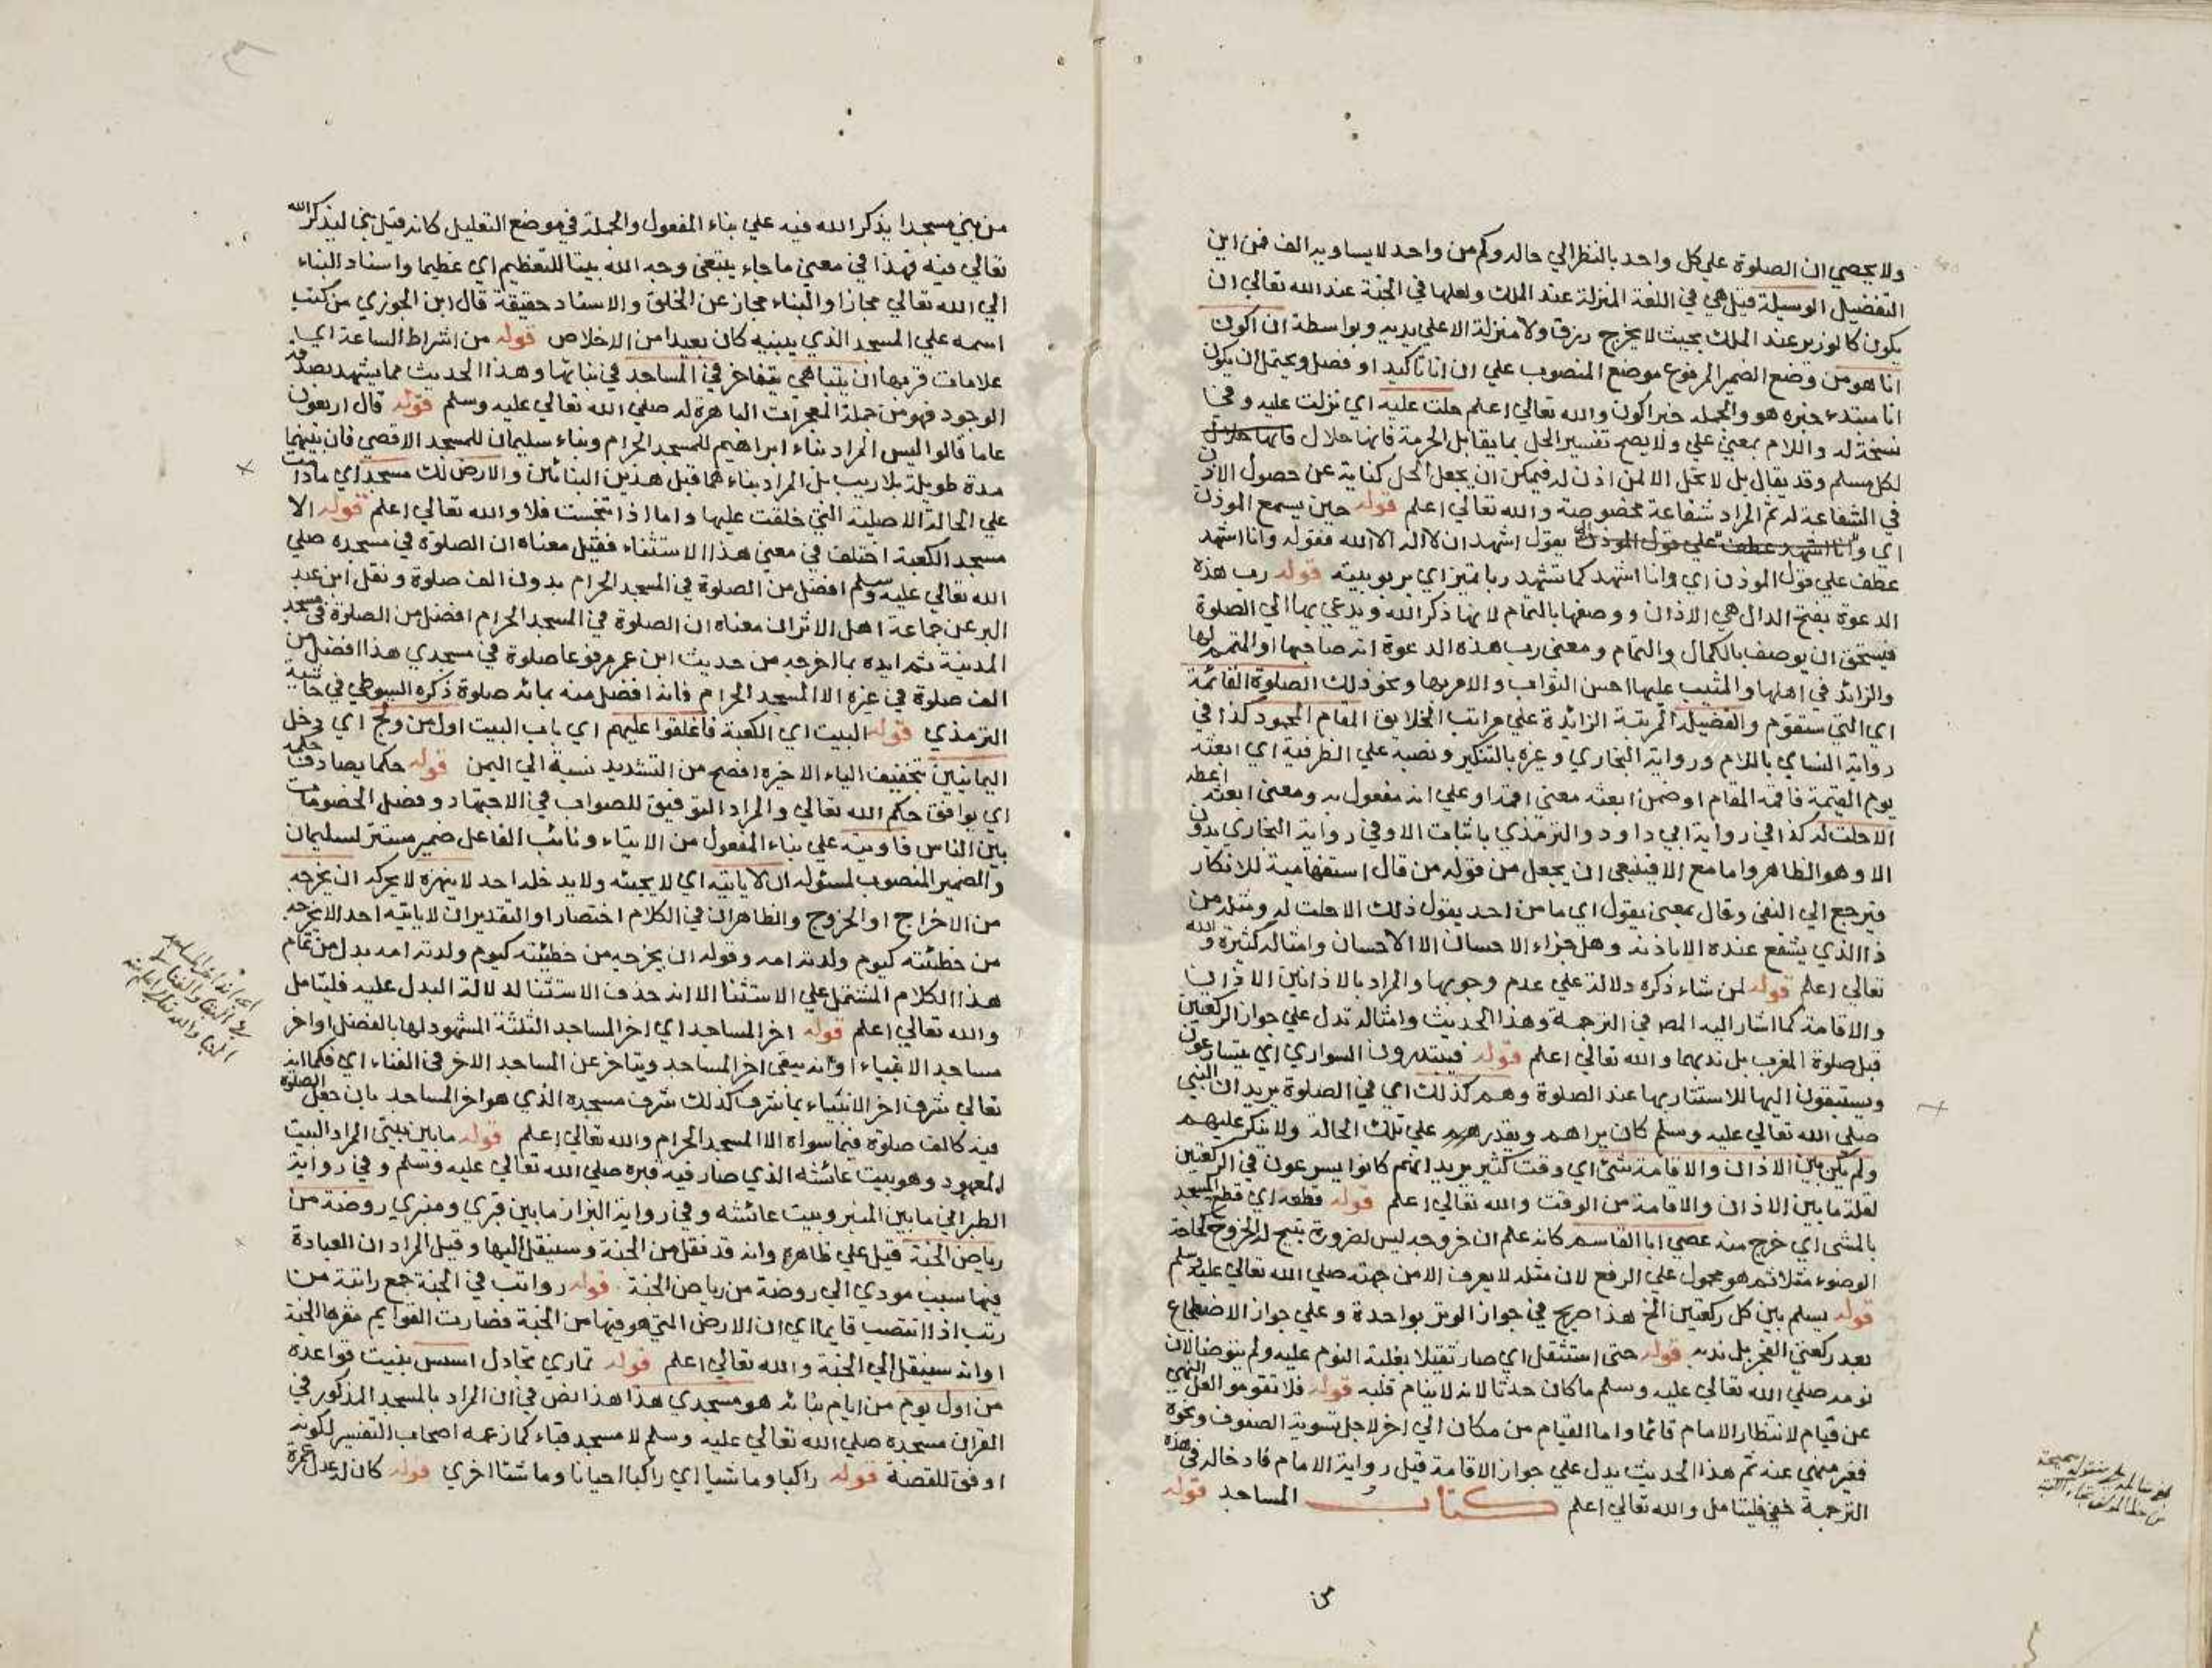 ولا يخصي ان الصلوة علي كل واحد بالنظر الي حاله وكم من واحد لا يساويه الف فمن اين
التفضيل الوسيلة قيل هي في اللغة المنزلة عند الملك ولعلها في الجنة عند الله تعالي ان
يكون كالوزير عند الملك بحيث لا يخرج رزق ولا منزلة الا علي يديه وبواسطة ان اكون
انا هو من وضع الضمير المرفوع موضع المنصوب علي ان انا تاكيد او فصل ويحتمل ان يكون
انا مبتدء خبره هو والجمله خبر اكون والله تعالي اعلم حلت عليه اي نزلت عليه وفي
نسخة له واللام بمعني علي ولا يصح تفسير الحل بما يقابل الحرمة فانها حلال فانها حلال
لكل مسلم وقد يقال بل لا تحل الا لمن اذن له فيمكن ان يجعل الحل كناية عن حصول الاذن
في الشفاعة له ثم المراد شفاعة مخصوصة والله تعالي اعلم قوله حين يسمع الموذن
اي وانا اشهد عطف علي قول الموذن اي يقول اشهد ان لا اله الا الله فقوله وانا اشهد
عطف علي قول الموذن اي وانا اشهد كما تشهد ربا تميز اي بربوبيته قوله رب هذه
الدعوة بفتح الدال هي الاذان ووصفها بالتمام لانها ذكر الله ويدعي بها الي الصلوة
فيستحق ان يوصف بالكمال والتمام ومعني رب هذه الدعوة انه صاحبها او المتمم لها
والزائد في اهلها والمثيب عليها احسن الثواب والامر بها ونحو ذلك الصلوة القائمة
اي التي ستقوم والفضيله المرتبة الزائدة علي مراتب الخلايق المقام المحمود كذا في
رواية النساي باللام ورواية البخاري وغيره بالتنكير ونصبه علي الظرفية اي ابعثه
يوم القيمة فاقمه المقام او ضمن ابعثه معني اقمه او علي انه مفعول به ومعني ابعثه اعطه
الا حلت له كذا في رواية ابي داود والترمذي باثبات الا وفي رواية البخاري بدون
الا وهو الظاهر واما مع الا فينبغي ان يجعل من قوله من قال استفهامية للانكار
فيرجع الي النفي وقال بمعني يقول اي ما من احد يقول ذلك الا حلت له ومثله من
ذا الذي يشفع عنده الا باذنه وهل جزاء الاحسان الا الاحسان وامثاله كثيرة والله
تعالي اعلم قوله لمن شاء ذكره دلالة علي عدم وجوبها والمراد بالاذانين الاذان
والاقامة كما اشار اليه المص في الترجمة وهذا الحديث وامثاله تدل علي جواز الركعتين
قبل صلوة المغرب بل ندبهما والله تعالي اعلم قوله فيبتدرون السواري اي يتسارعون
ويستبقون اليها للاستتار بها عند الصلوة وهم كذلك اي في الصلوة يريد ان النبي
صلي الله تعالي عليه وسلم كان يراهم ويقدرهم علي تلك الحالة ولا ينكر عليهم
ولم يكن بين الاذان والاقامة شئ اي وقت كثير يريد انهم كانوا يسرعون في الركعتين
لقلة ما بين الاذان والاقامة من الوقت والله تعالي اعلم قوله قطعه اي قطع المسجد
بالمشي اي خرج منه عصي ابا القاسم كانه علم ان خروجه ليس لضرورة تبيح له الخروج كحاجة
الوضوء مثلا ثم هو محمول علي الرفع لان مثله لا يعرف الا من جهته صلي الله تعالي عليه وسلم
قوله يسلم بين كل ركعتين الخ هذا صريح في جواز الوتر بواحدة وعلي جواز الاضطجاع
بعد ركعتي الفجر بل ندبه قوله حتي استثقل اي صار ثقيلا بغلبة النوم عليه ولم يتوضا لان
نومه صلي الله تعالي عليه وسلم ما كان حدثا لانه لا ينام قلبه قوله فلا تقوموا لعل النهي
عن قيام لانتظار الامام قائما واما القيام من مكان الي اخر لاجل تسوية الصفوف ونحوه
فغير منهي عنه ثم هذا الحديث يدل علي جواز الاقامة قبل رواية الامام فادخاله في هذه
الترجمة خفي فليتامل والله تعالي اعلم كتاب المساجد قوله
من
من بني مسجدا يذكر الله فيه علي بناء المفعول والجملة في موضع التعليل كانه قيل بني ليذكر الله
تعالي فيه فهذا في معني ما جاء يبتغي وجه الله بيتا للتعظيم اي عظيما واسناد البناء
الي الله تعالي مجاز او البناء مجاز عن الخلق والاسناد حقيقة قال ابن الجوزي من كتب
اسمه علي المسجد الذي يبنيه كان بعيدا من الاخلاص قوله من اشراط الساعة اي
علامات قربها ان يتباهي يتفاخر في المساجد في بنائها وهذا الحديث مما يشهد بصدقه
الوجود فهو من جملة المعجزات الباهرة له صلي الله تعالي عليه وسلم قوله قال اربعون
عاما قالوا ليس المراد بناء ابراهيم للمسجد الحرام وبناء سليمان للمسجد الاقصي فان بينهما
مدة طويلة بلا ريب بل المراد بناءهما قبل هذين البنائين والارض لك مسجد اي ما دامت
علي الحالة الاصلية التي خلقت عليها واما اذا تنجست فلا والله تعالي اعلم قوله الا
مسجد الكعبة اختلف في معني هذا الاستثناء فقيل معناه ان الصلوة في مسجده صلي
الله تعالي عليه وسلم افضل من الصلوة في المسجد الحرام بدون الف صلوة ونقل ابن عبد
البر عن جماعة اهل الاثر ان معناه ان الصلوة في المسجد الحرام افضل من الصلوة في مسجد
المدينة ثم ايده بما اخرجه من حديث ابن عمر مرفوعا صلوة في مسجدي هذا افضل من
الف صلوة في غيره الا المسجد الحرام فانه افضل منه بمائة صلوة ذكره السيوطي في حاشية
الترمذي قوله البيت اي الكعبة فاغلقوا عليهم اي باب البيت اول من ولج اي دخل
اليمانيين بتخفيف الياء الاخيره افصح من التشديد نسبة الي اليمن قوله حكما يصادف حكمه
اي يوافق حكم الله تعالي والمراد التوفيق للصواب في الاجتهاد وفصل الخصومات
بين الناس فاوتيه علي بناء المفعول من الايتاء ونائب الفاعل ضمير مستتر لسليمان
والضمير المنصوب لمسئوله ان لا ياتيه اي لا يجيئه ولا يدخله احد لا ينهزه لا يحركه ان يخرجه
من الاخراج او الخروج والظاهر ان في الكلام اختصارا والتقدير ان لا ياتيه احد الا يخرجه
من خطيئته كيوم ولدته امه وقوله ان يخرجه من خطيئته كيوم ولدته امه بدل من تمام
هذا الكلام المشتمل علي الاستثنا الا انه حذف الاستثنا لدلالة البدل عليه فليتامل
والله تعالي اعلم قوله اخر المساجد اي اخر المساجد الثلثة المشهود لها بالفضل او اخر
مساجد الانبياء او انه يبقي اخر المساجد ويتاخر عن المساجد الاخر في الفناء اي فكما انه
تعالي شرف اخر الانبياء بما شرف كذلك شرف مسجده الذي هو اخر المساجد بان جعل الصلوة
فيه كالف صلوة فيما سواه الا المسجد الحرام والله تعالي اعلم قوله ما بين بيتي المراد البيت
المعهود وهو بيت عائشه الذي صار فيه قبره صلي الله تعالي عليه وسلم وفي رواية
الطبراني ما بين المنبر وبيت عائشه وفي رواية البزار ما بين قبري ومنبري روضة من
رياض الجنة قيل علي ظاهره وانه قد نقل من الجنة وسينقل اليها وقيل المراد ان العبادة
فيها سبب مودي الي روضة من رياض الجنة قوله رواتب في الجنة جمع راتبة من
رتب اذا انتصب قايما اي ان الارض التي هو فيها من الجنة فصارت القوايم مقرها الجنة
او انه سينقل الي الجنة والله تعالي اعلم قوله تماري تجادل اسس بنيت قواعده
من اول يوم من ايام بنائه هو مسجدي هذا هذا نص في ان المراد بالمسجد المذكور في
القران مسجده صلي الله تعالي عليه وسلم لا مسجد قباء كما زعمه اصحاب التفسير لكونه
اوفق للقصة قوله راكبا وماشيا اي راكبا احيانا وماشيا اخري قوله كان له عدل عمرة